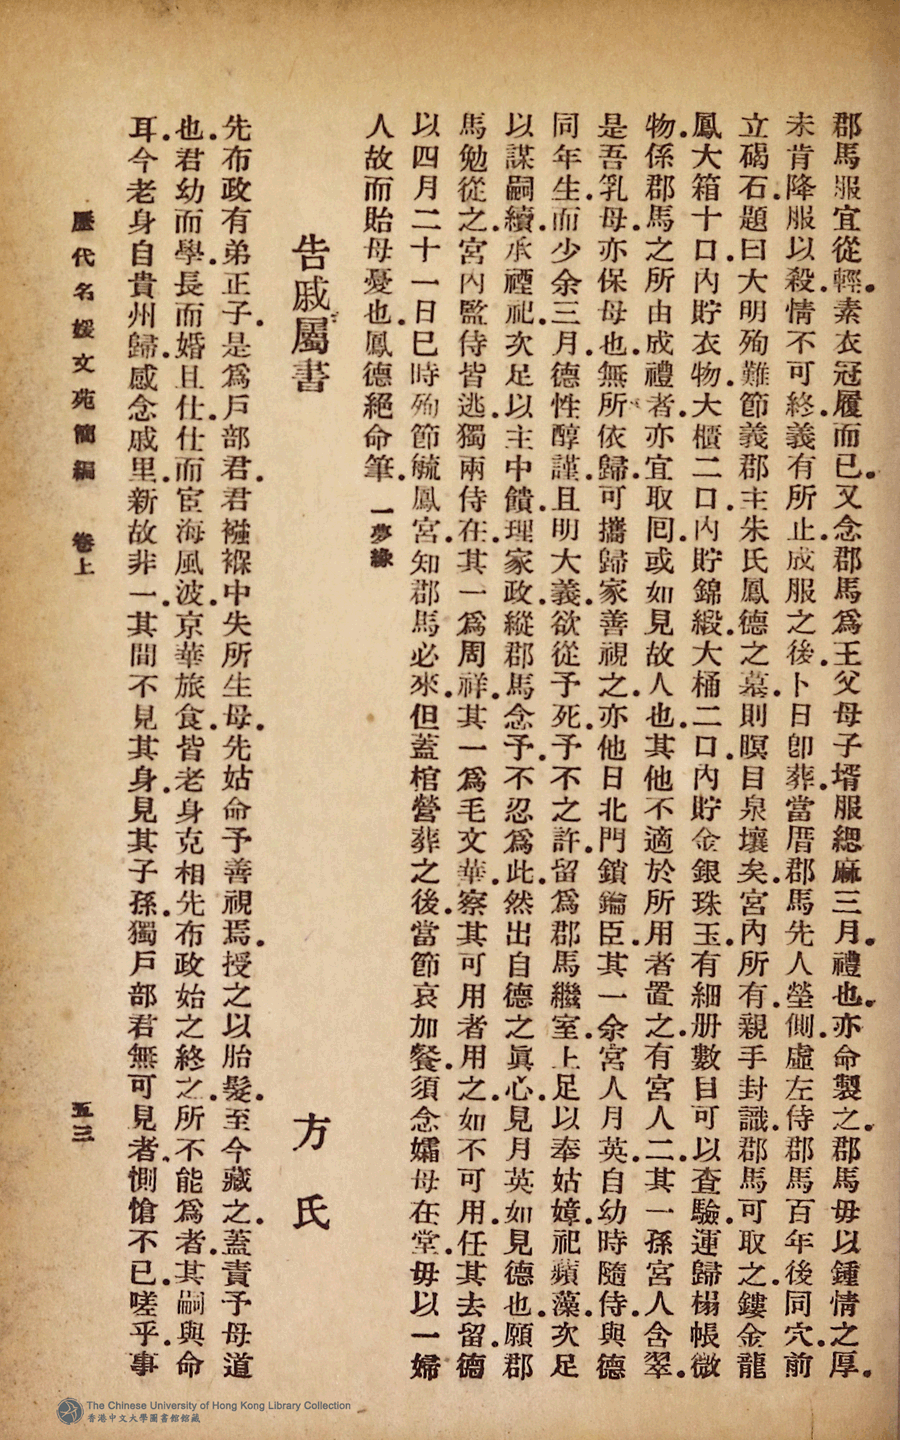 郡馬服宜從輕。素衣冠履而已。又念郡馬爲王父母子壻。服緦麻三月。禮也。亦命製之。郡馬毋以鍾情之厚。
未肯降服。以殺情不可終。義有所止。成服之後。卜日卽葬。當厝郡馬先人塋側。虛左侍郡馬百年後同穴。前
立碣石。題曰。大明殉難節義郡主朱氏鳳德之墓。則瞑目泉壤矣。宮內所有。親手封識。郡馬可取之。鏤金龍
鳳大箱十口。內貯衣物。大櫃二口。內貯錦緞。大桶二口。內貯金銀珠玉。有細册數目可以査驗。運歸榻帳微
物。係郡馬之所由成禮者。亦宜取囘。或如見故人也。其他不適於所用者置之。有宮人二。其一孫宮人含翠。
是吾乳母。亦保母也。無所依歸。可攜歸家善視之。亦他日北門鎖鑰臣。其一余宮人月英。自幼時隨侍。與德
同年生。而少余三月。德性醇謹。且明大義。欲從予死。予不之許。留爲郡馬繼室。上足以奉姑嫜。祀蘋藻。次足
以謀嗣續。承禋祀。次足以主中饋。理家政。縱郡馬念予。不忍爲此。然出自德之眞心。見月英如見德也。願郡
馬勉從之。宮內監侍皆逃。獨兩侍在。其一爲周祥。其一爲毛文華。察其可用者用之。如不可用。任其去留。德
以四月二十一日巳時殉節毓鳳宮。知郡馬必來。但蓋棺營葬之後。當節哀加餐。須念孀母在堂。毋以一婦
人故而貽母憂也。鳳德絕命筆。一夢緣
告戚屬書 方氏
先布政有弟正子。是爲戶部君。君襁褓中失所生母。先姑命予善視焉。授之以胎髮。至今藏之。蓋責予母道
也。君幼而學。長而婚且仕。仕而宦海風波。京華旅食。皆老身克相先布政始之終之。所不能爲者。其嗣與命
耳。今老身自貴州歸。感念戚里。新故非一。其間不見其身。見其子孫。獨戶部君無可見者。惻愴不已。嗟乎。事
歷代名媛文苑簡編 卷上 五三
The Chinese University of Hong Kong Library Collection
香港中文大學圖書館館藏